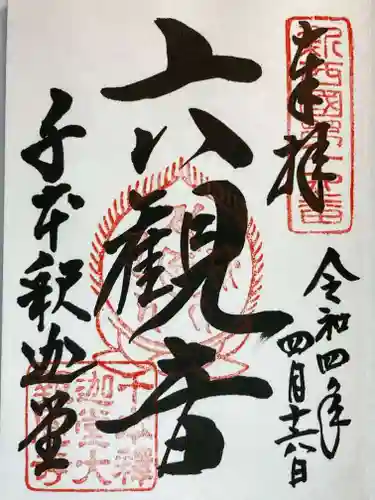 奉拝
令和四年
四月十六日
六観音
千本釈迦堂
新西國第十六番
千本釋
迦堂大
報恩寺